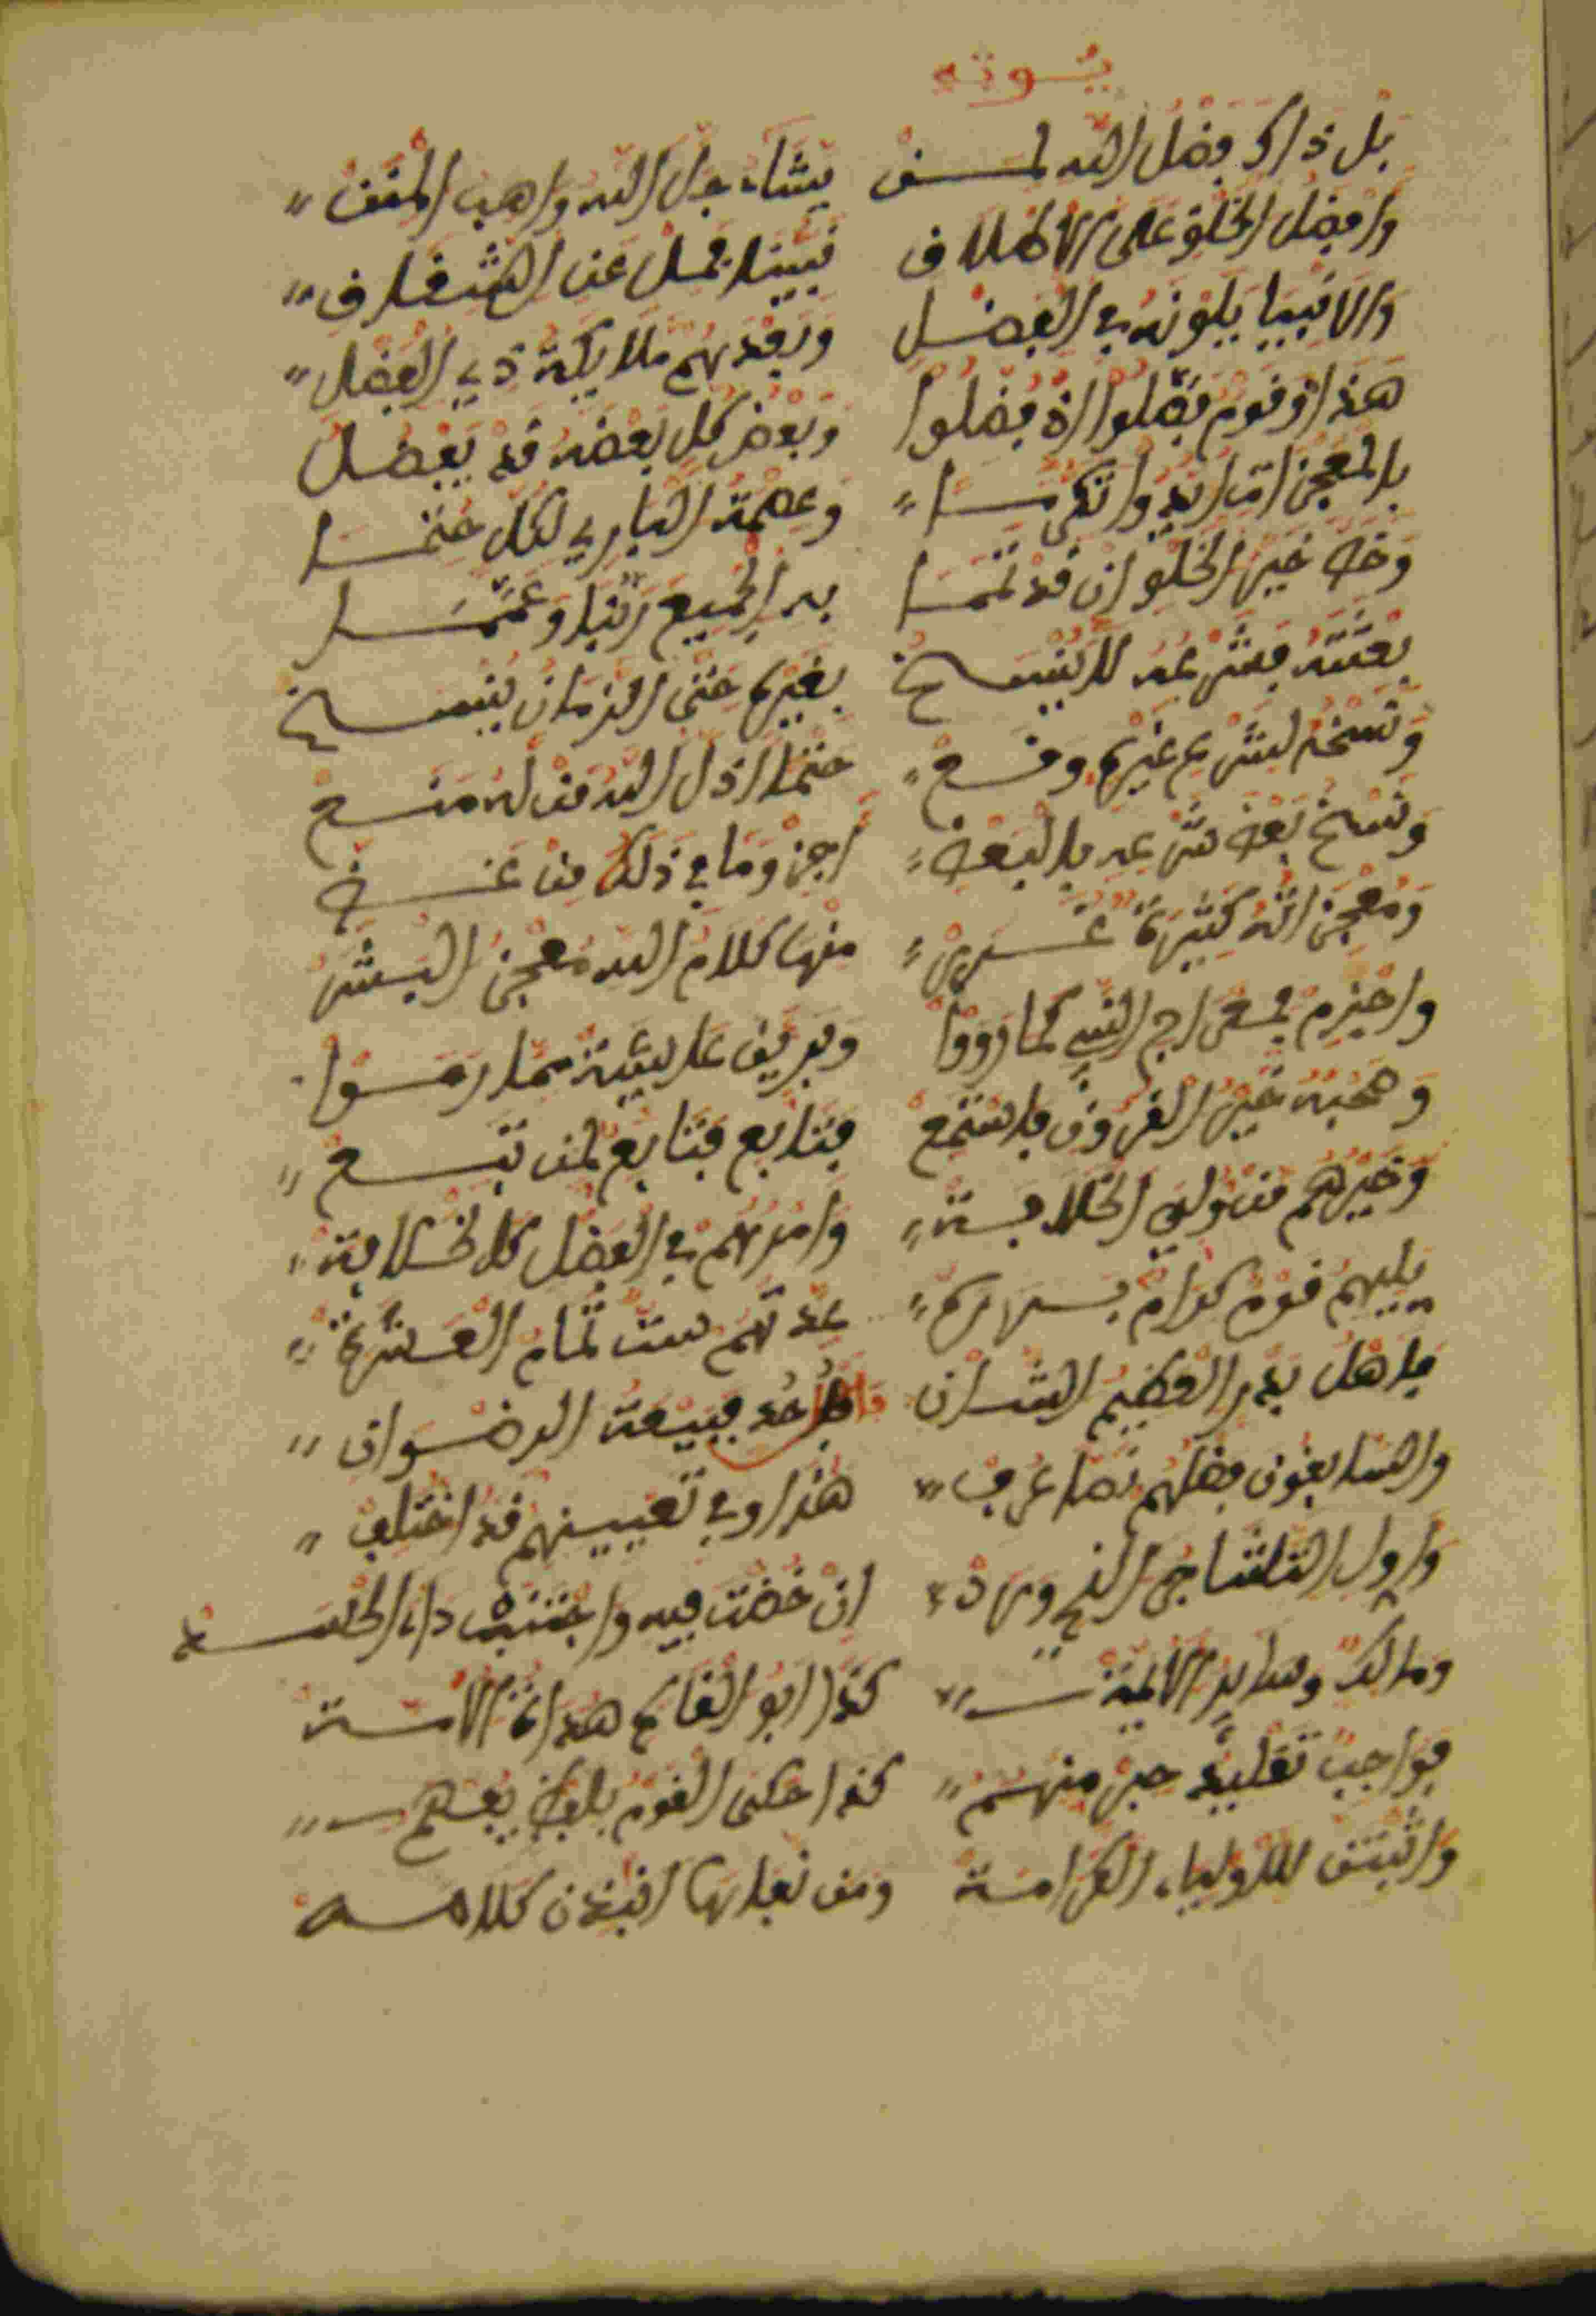 بل ذاك فضل الله لمن يشاء جل الله واهب المنن
وافضل الخلق على الاطلاق نبينا فمل عن الشقاق
والانبيا يلونه في الفضل وبعدهم ملايكة ذي الفضل
هذا وقوم فصلوا اذ فضلوا وبعض كل بعضه قد يفضل
بالمعجزات ايدوا تكرما وعصمة الباري لكل حتما
وخص خير الخلق ان قد تمما به الجميع ربنا وعمما
بعثته فشرعه لا ينسخ بغيره حتى الزمان ينسخ
ونسخه لشرع غيره وقع حتما اذل الله من له منع
ونسخ بعض شرعه بالبعض اجز وما في ذلك من غض
ومعجزاته كثيرة غرر منها كلام الله معجز البشر
واجزم بمعراج النبي كما رووا وبرين عايشة مما رموا
وصحبه خير القرون فاستمع فتابع فتابع لمن تبع
وخيرهم من ولي الخلافة وامرهم في الفضل كالخلافة
يليهم قوم كرام برره عدتهم ست تمام العشرة
فاهل بدر العظيم الشان فاحد فبيعة الرضوان
والسابقون فضلهم نصا عرف هذا وفي تعيينهم قد اختلف
واول التشاجر الذي ورد ان خضت فيه واجتنب داء الحسد
ومالك وساير الايمة كذا ابو القاسم هداة الامة
فواجب تقليد حبر منهم كذا حكى القوم بلفظ يفهم
واثبتن للاولياء الكرامة ومن نفاها انبذن كلامه